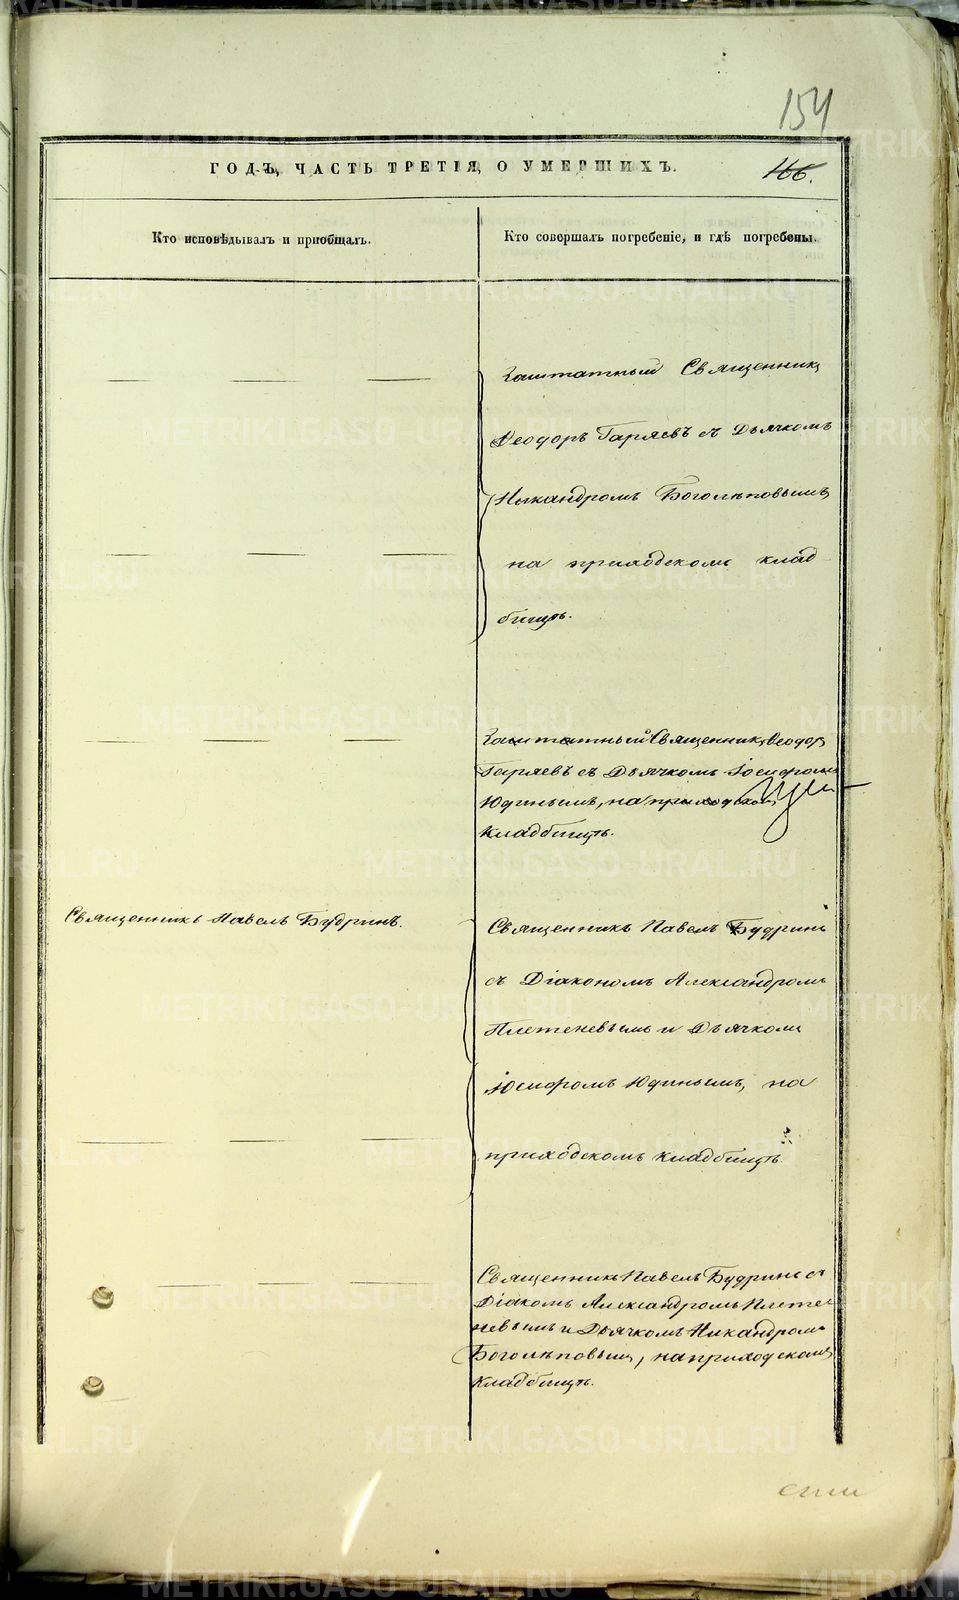 154
ГОДЪ, ЧАСТЬ ТРЕТІЯ, О УМЕРШИХЪ.
166.
Кто исповѣдывалъ и пріобщалъ.
Кто совершалъ погребеніе, и гдѣ погребены.
Заштатный Священникъ
Ѳеодоръ Гаряевъ съ Дьячкомъ
Никандромъ Боголѣповымъ,
на приходскомъ клад
бищѣ.
Заштатный Священникъ Ѳеодоръ
Гаряевъ съ Дьячкомъ Іосифомъ
Юдинымъ, на приходскомъ
кладбищѣ.
Священникъ Павелъ Будринъ.
Священникъ Павелъ Будринъ
съ Діакономъ Александромъ
Плетеневымъ и Дьячкомъ
Іосифомъ Юдинымъ, на
приходскомъ кладбищѣ.
Священникъ Павелъ Будринъ съ
Діакомъ Александромъ Плете
невымъ и Дьячкомъ Никандромъ
Боголѣповымъ, на приходскомъ
кладбищѣ.
METRIKI.GASO-URAL.RU